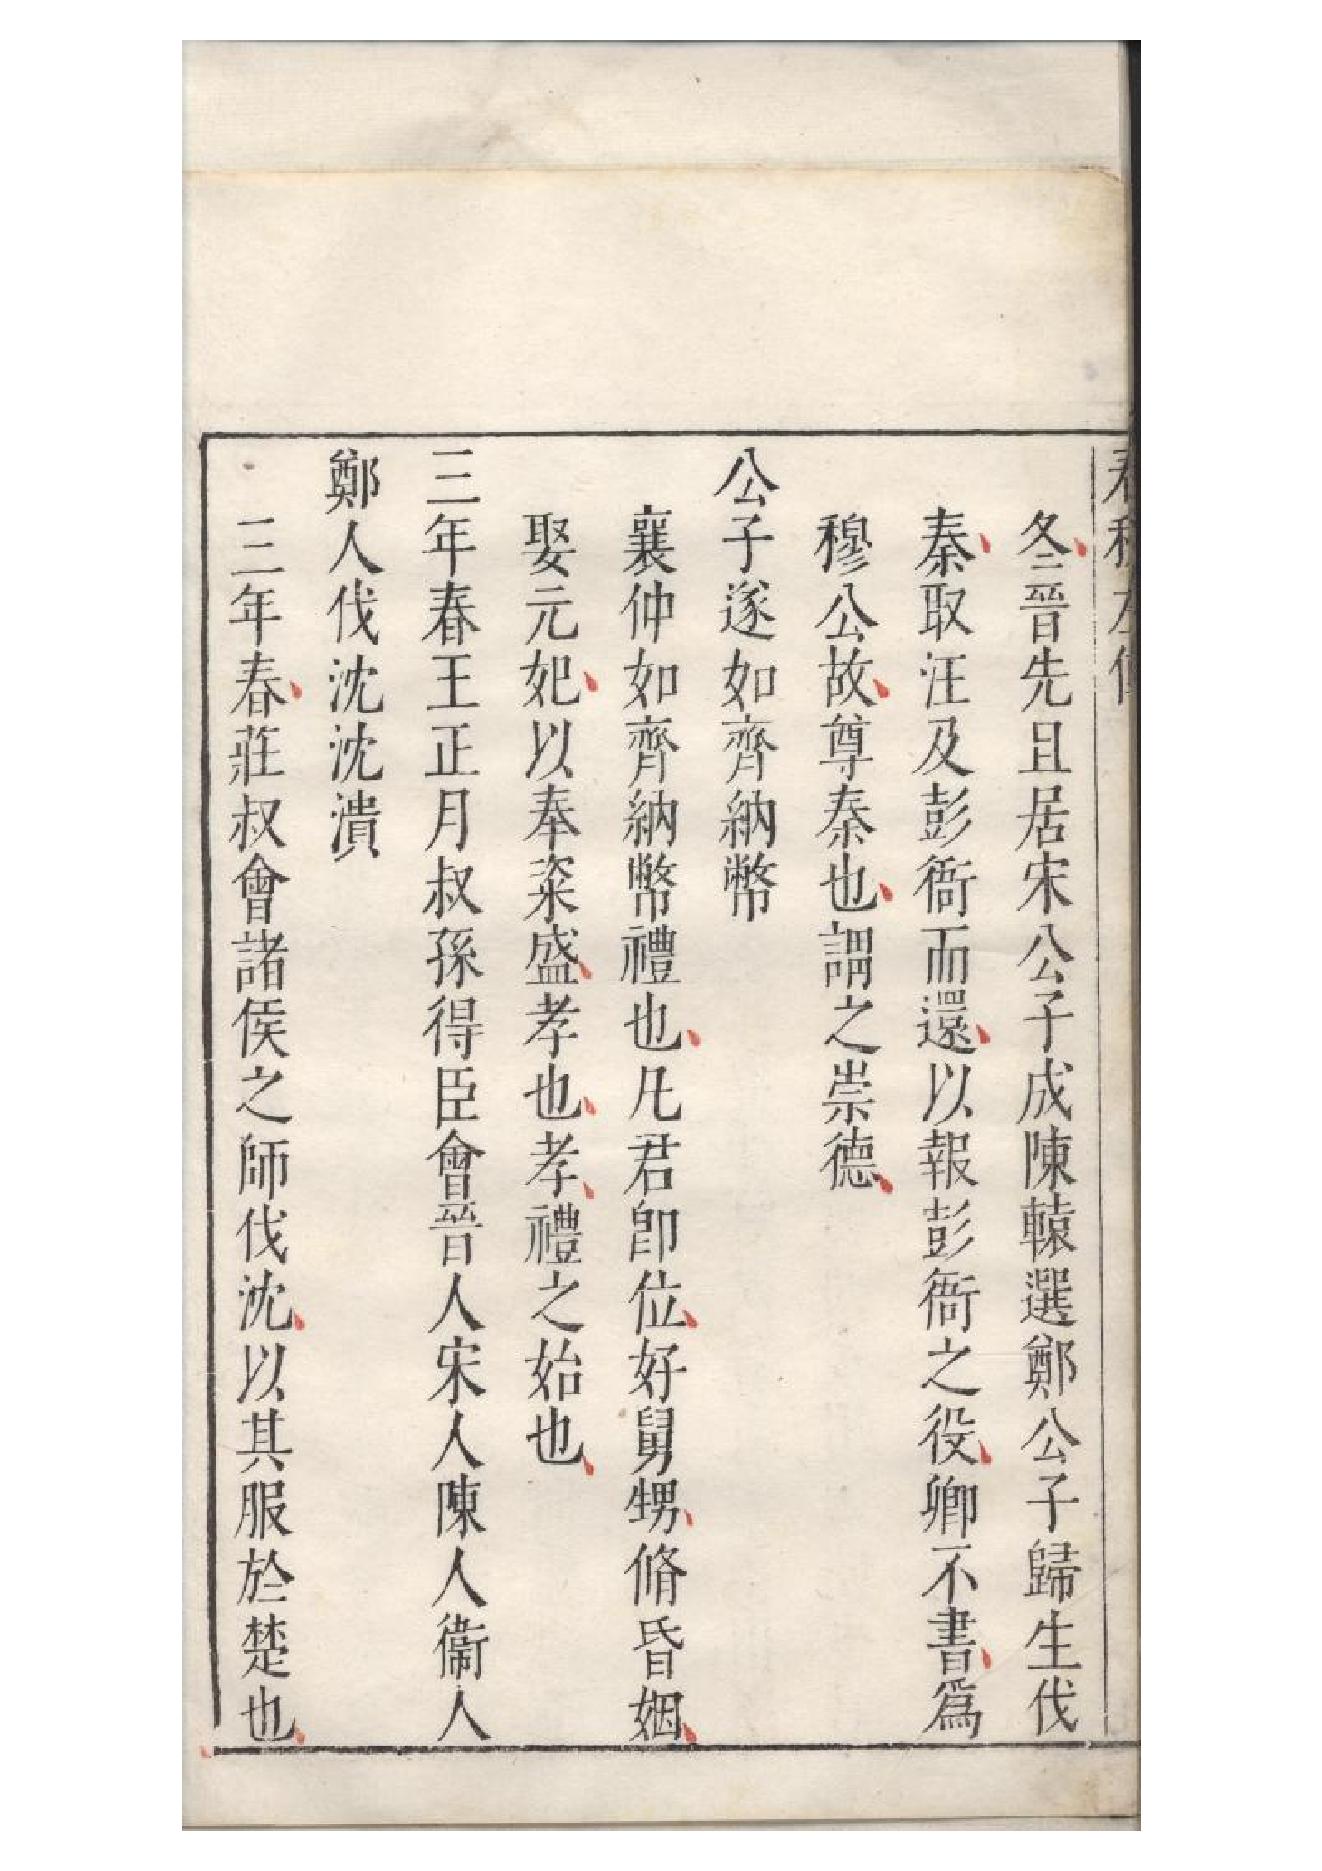 春秋左傳
冬晉先且居宋公子成陳轅選鄭公子歸生伐
秦取汪及彭衙而還以報彭衙之役卿不書爲
穆公故尊秦也謂之崇德
公子遂如齊納幣
襄仲如齊納幣禮也凡君卽位好舅甥脩昏姻
娶元妃以奉粢盛孝也孝禮之始也
三年春王正月叔孫得臣會晉人宋人陳人衞人
鄭人伐沈沈潰
三年春莊叔會諸侯之師伐沈以其服於楚也